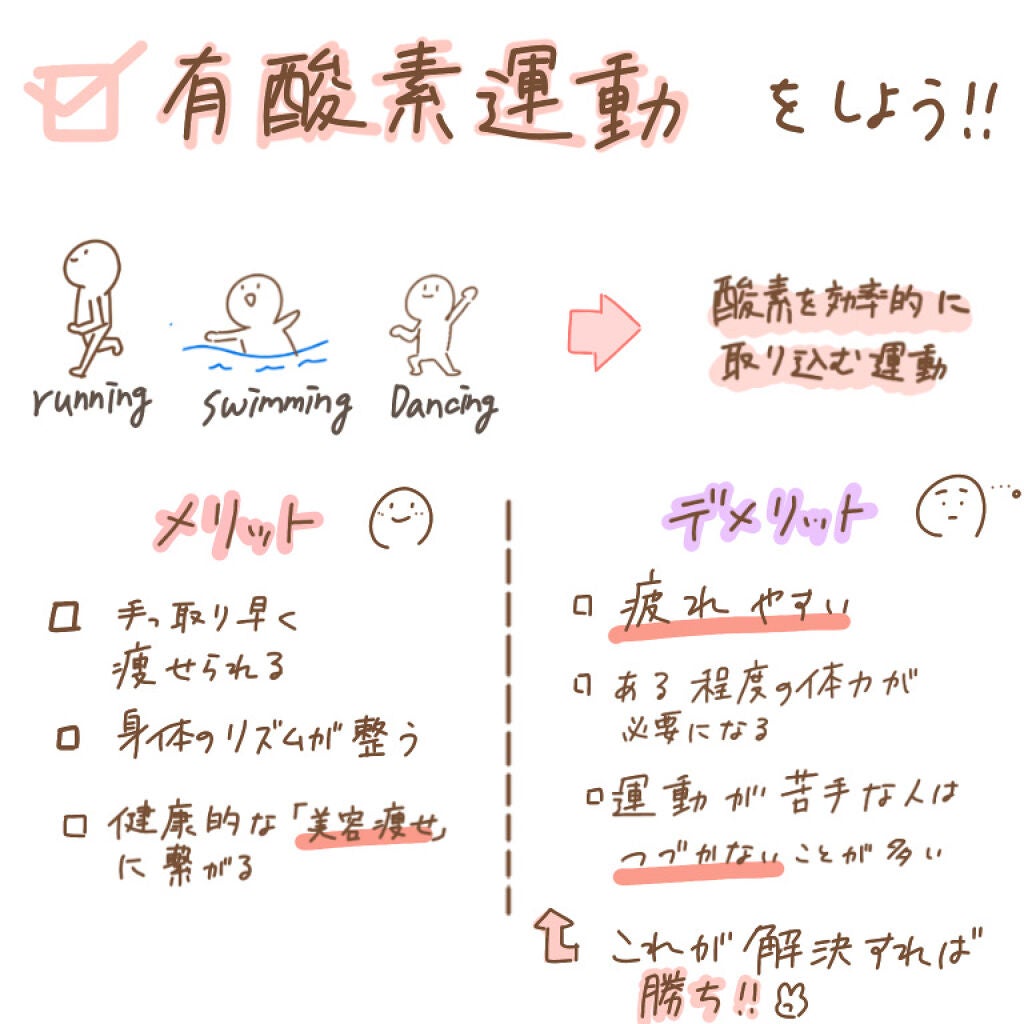 有酸素運動 をしよう!!
running swimming Dancing
酸素を効率的に
取り込む運動
メリット
手っ取り早く
痩せられる
身体のリズムが整う
健康的な「美容痩せ」
に繋がる
デメリット
疲れやすい
ある程度の体力が
必要になる
運動が苦手な人は
つづかないことが多い
これが解決すれば
勝ち!!